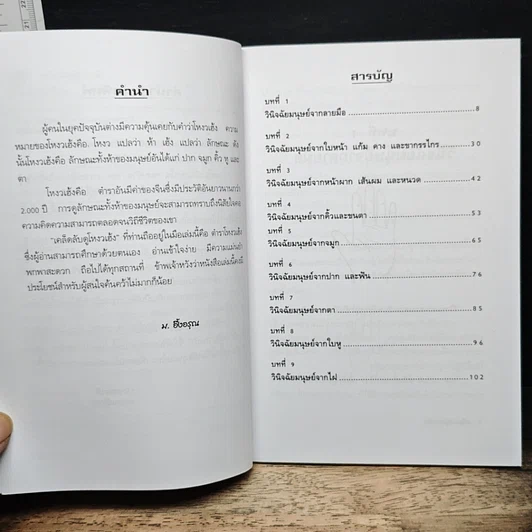 คำนำ
ผู้คนในยุคปัจจุบันต่างมีความคุ้นเคยกับคำว่าโหงวเฮ้ง ความ
หมายของโหงวเฮ้งคือ โหงว แปลว่า ห้า เฮ้ง แปลว่า ลักษณะ ดัง
นั้นโหงวเฮ้งคือ ลักษณะทั้งห้าของมนุษย์อันได้แก่ ปาก จมูก คิ้ว หู และ
ตา
โหงวเฮ้งคือ ตำราอันมีค่าของจีนซึ่งมีประวัติอันยาวนานกว่า
2,000 ปี การดูลักษณะทั้งห้าของมนุษย์จะสามารถทราบถึงนิสัยใจคอ
ความคิดความสามารถตลอดจนวิถีชีวิตของเขา
"เคล็ดลับดูโหงวเฮ้ง" ที่ท่านถืออยู่ในมือเล่มนี้คือ ตำราโหงวเฮ้ง
ซึ่งผู้อ่านสามารถศึกษาด้วยตนเอง อ่านเข้าใจง่าย มีความแม่นยำ
พกพาสะดวก ถือไปได้ทุกสถานที่ ข้าพเจ้าหวังว่าหนังสือเล่มนี้คงมี
ประโยชน์สำหรับผู้สนใจค้นคว้าไม่มากก็น้อย
ม. อึ้งอรุณ
สารบัญ
บทที่ 1
วินิจฉัยมนุษย์จากลายมือ 8
บทที่ 2
วินิจฉัยมนุษย์จากใบหน้า แก้ม คาง และขากรรไกร 30
บทที่ 3
วินิจฉัยมนุษย์จากหน้าผาก เส้นผม และหนวด 42
บทที่ 4
วินิจฉัยมนุษย์จากคิ้วและขนตา 53
บทที่ 5
วินิจฉัยมนุษย์จากจมูก 65
บทที่ 6
วินิจฉัยมนุษย์จากปาก และฟัน 76
บทที่ 7
วินิจฉัยมนุษย์จากตา 85
บทที่ 8
วินิจฉัยมนุษย์จากใบหู 96
บทที่ 9
วินิจฉัยมนุษย์จากไฝ 102